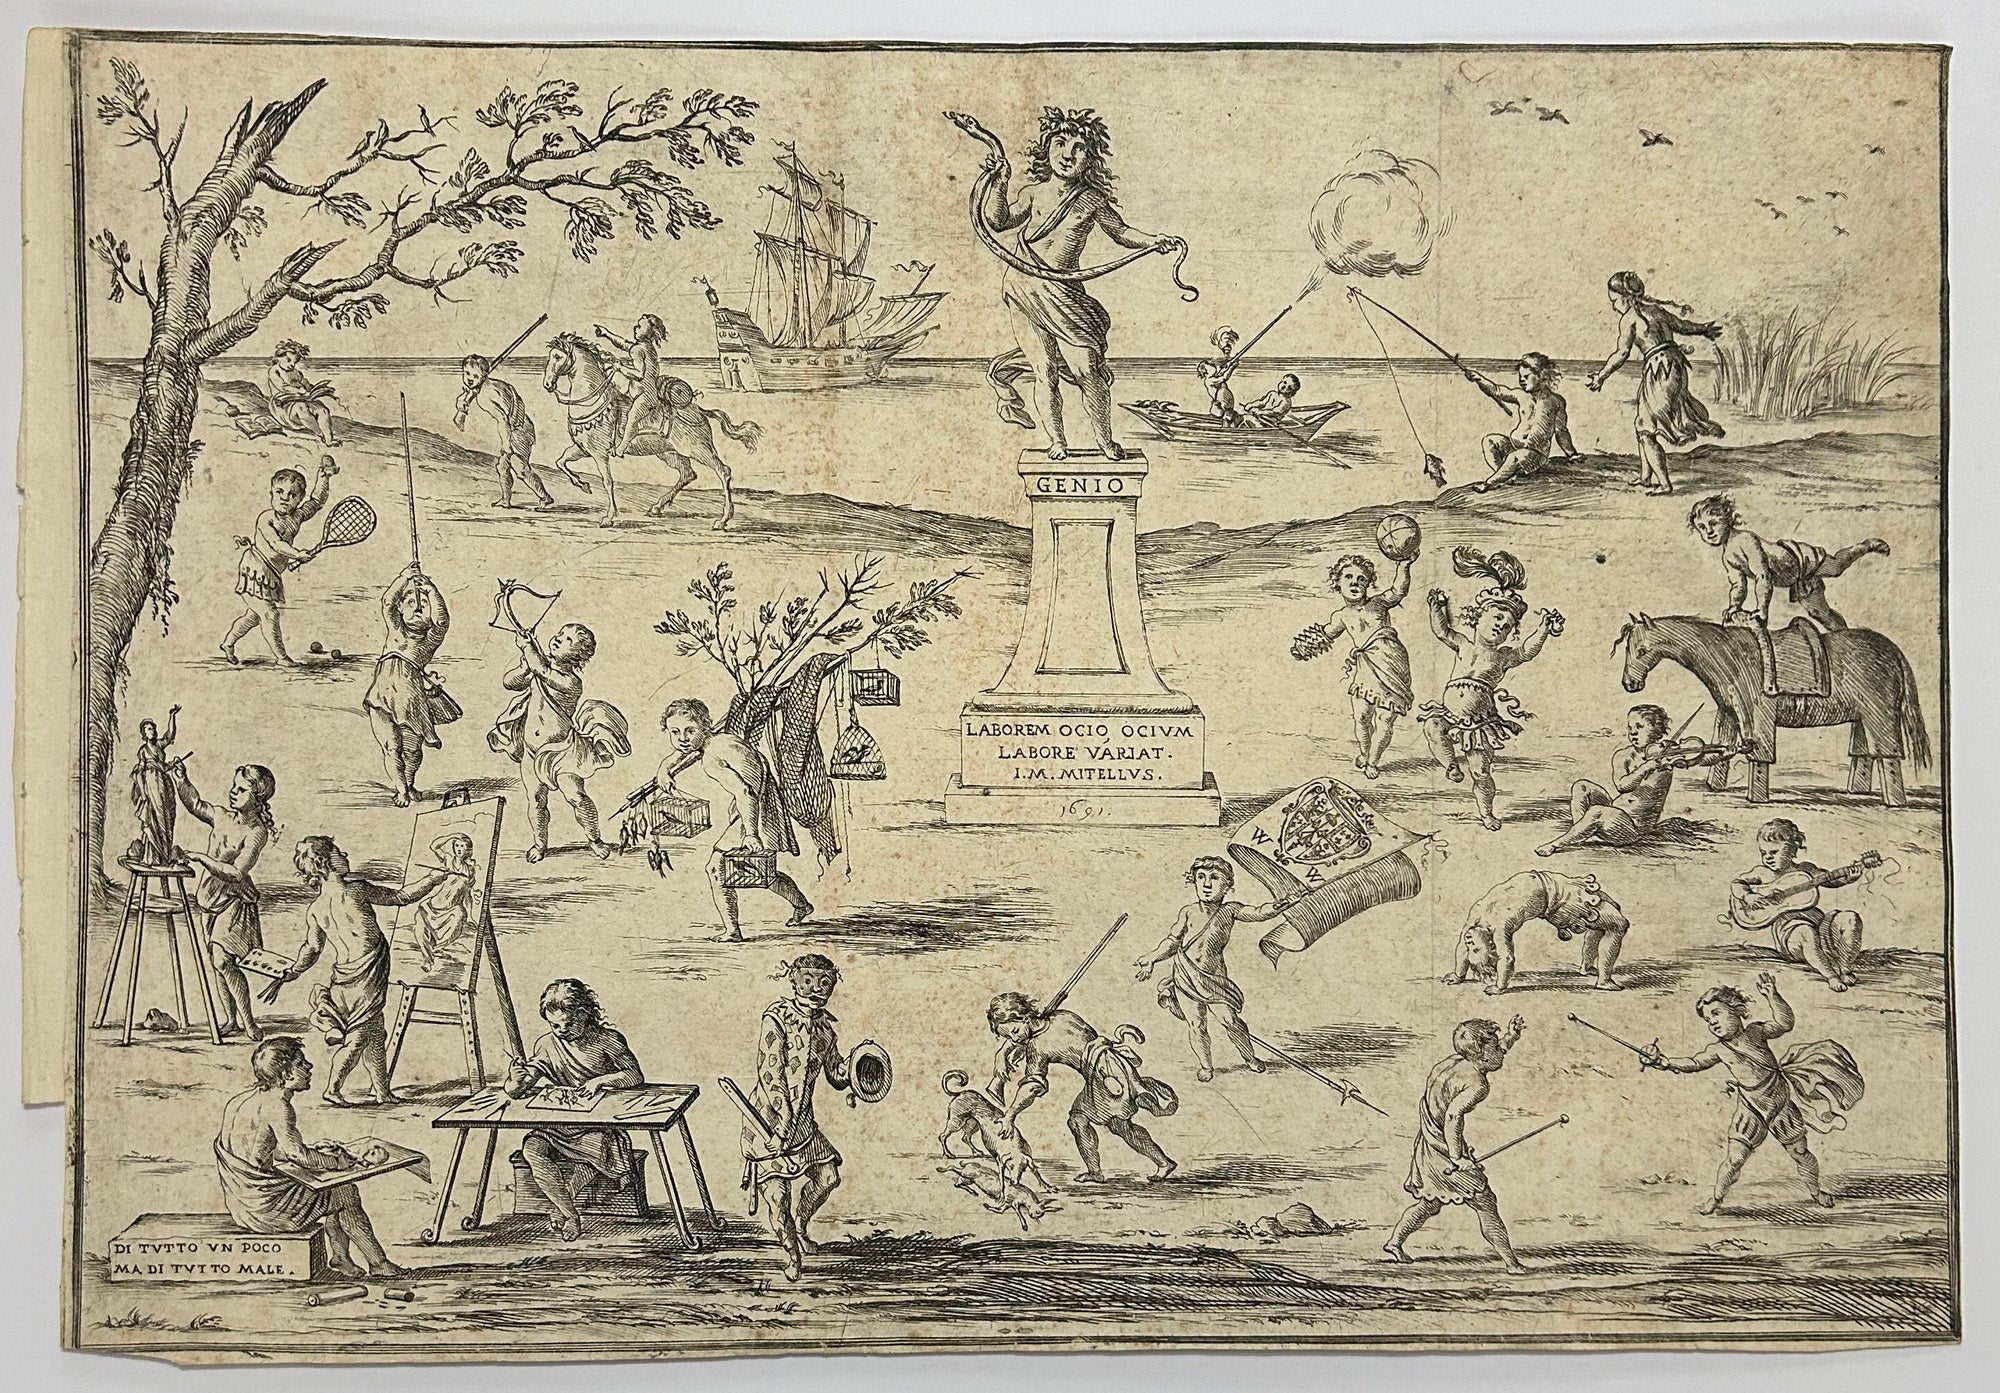 GENIO
LABOREM OCIO, OCIVM
LABORE VARIAT.
I.M. MITELLVS.
1691.
W
W
DI TVTTO VN POCO
MA DI TVTTO MALE.